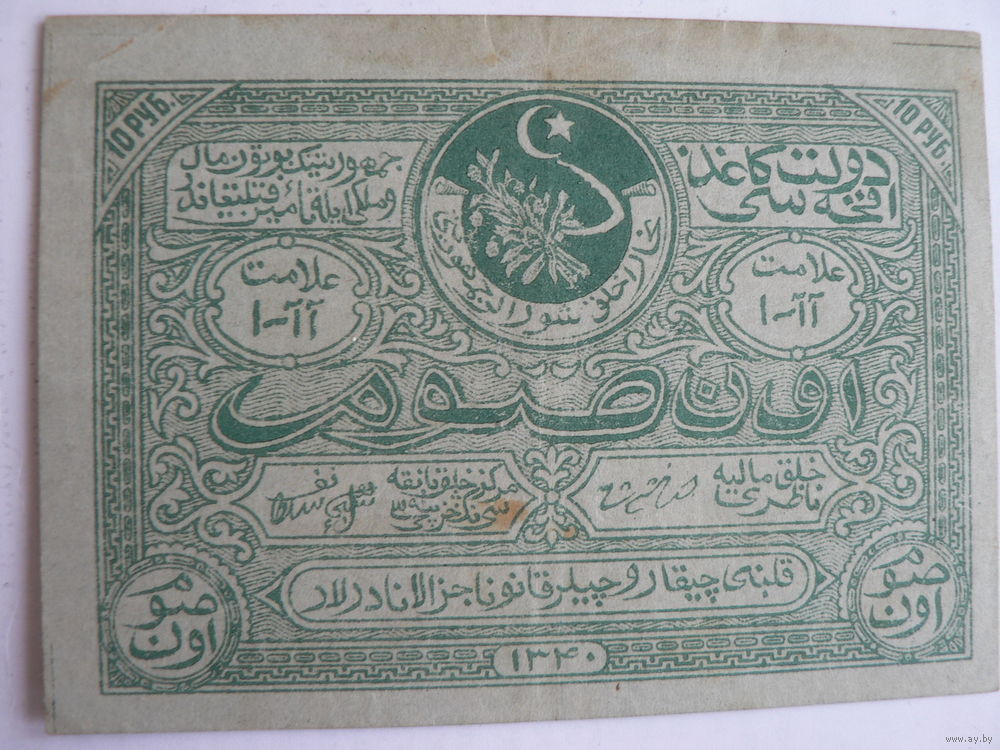 10 РУБ.
10 РУБ.
دولت کاغذ
اقچه سی
جمهوریتینک بوتون مال
و ملکی ایله تأمین قیلینهاندر
علامت
آآ-۱
علامت
آآ-۱
بخارا خلق شورالر جمهوریتی
اون صوم
خلق مالیه
ناظری
مرکز خلق بانقه
سی
قلبنی چیقاروچیلر قانونا جزالانادرلار
اون
صوم
اون
صوم
۱۳۴۰
www.ay.by